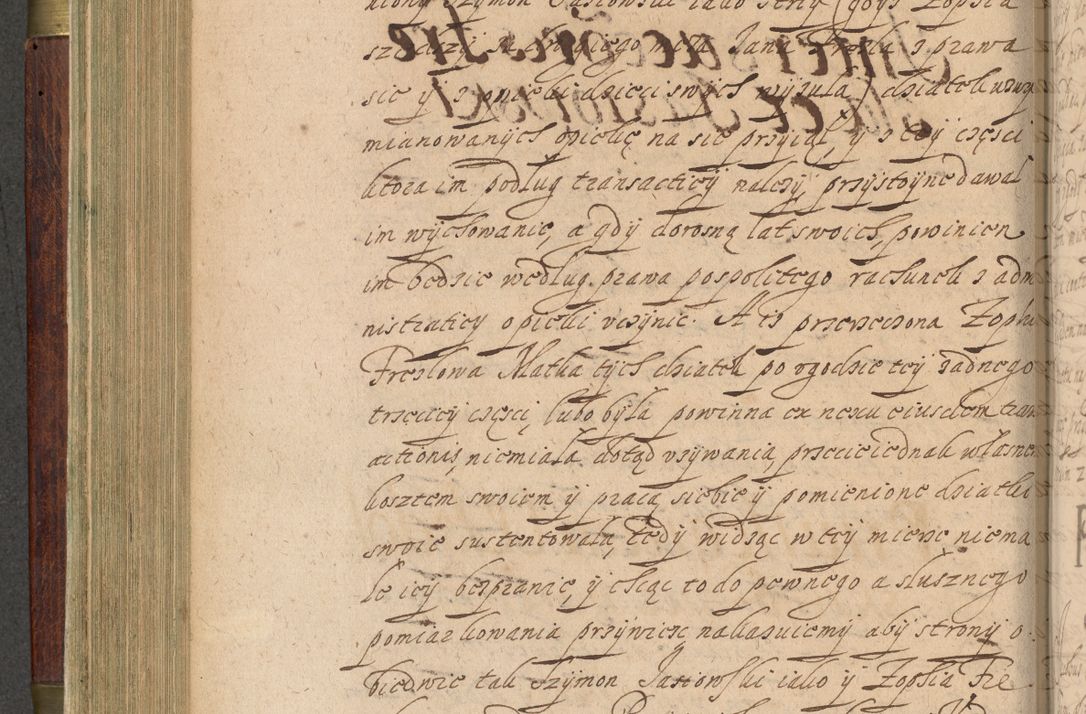 niony Szymon Jastowski iako stryi (gdyż Zophia
szedszy za drugiego męża Jana Frezla z prawa
sie y z opieki dzieci swych wyzuła) dziatek wzwy
mianowanych opiekę na sie przyiął, y z tey części
ktora im podług transacticy należy, przystoyne dawał
im wychowanie, a gdy dorosną lat swoich, powinien
im będzie według prawa pospolitego rachunek z adm
nistraticy opieki uczynic. A iż przerzeczona Zophi
Frezlowa Matka tych dziatek po ugodzie tey żadnego
trzeciey części, lubo była powinna ex nexu eiusdem tran
actionis, niemiała dotąd używania, przecie iednak własne
kosztem swoiem y pracą siebie y pomienione dziatki
swoie sustentowała, tedy widząc w tey mierze niema
łe iey bezpranie, y chcąc to do pewnego a słusznego
pomiarkowania przywiesc nakazuiemy aby strony o
biedwie tak Szymon Jastowski iako y Zophia Fre